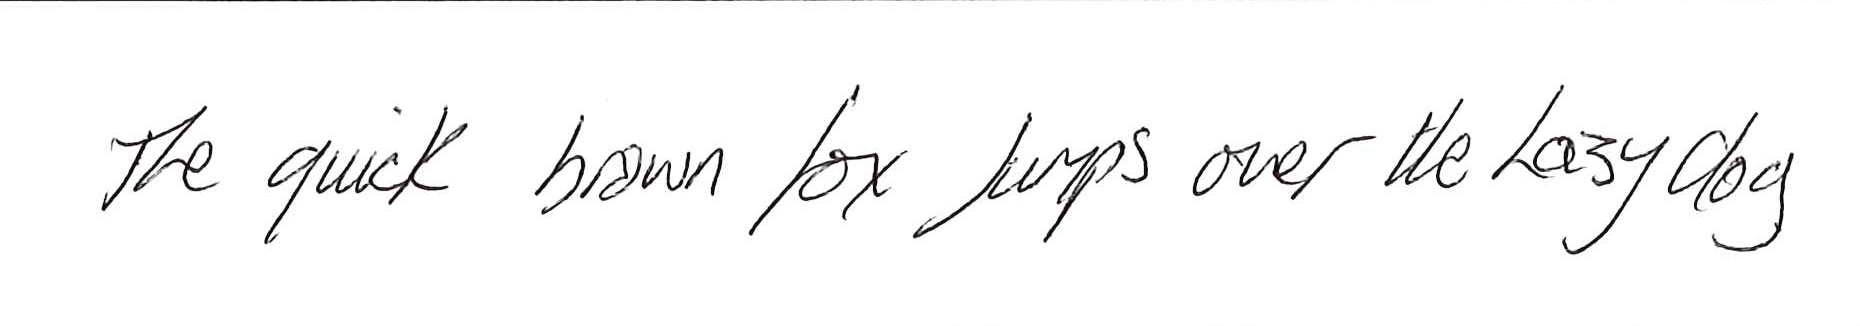 The quick brown fox jumps over the Lazy dog